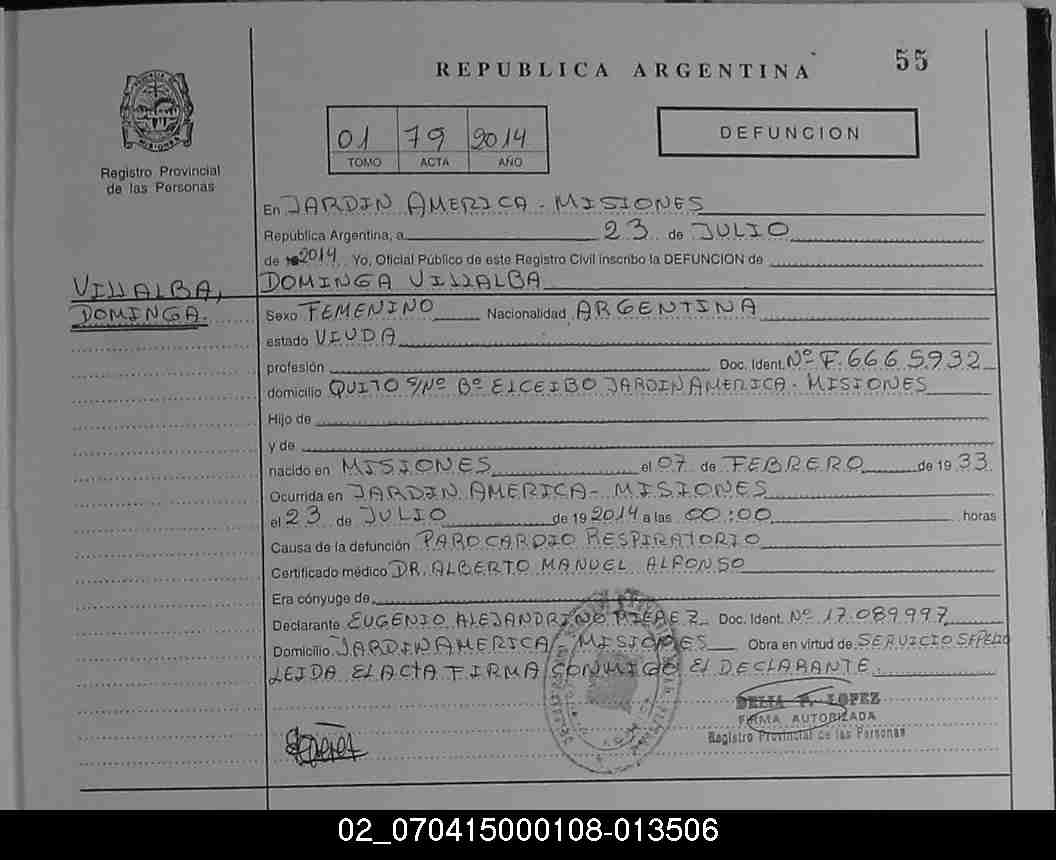 55
REPUBLICA ARGENTINA
MISIONES
Registro Provincial
de las Personas
01 79 2014
TOMO ACTA AÑO
DEFUNCION
VILLALBA,
DOMINGA.
En JARDIN AMERICA - MISIONES
Republica Argentina, a 23 de JULIO
de 19 2014 Yo, Oficial Público de este Registro Civil inscribo la DEFUNCION de
DOMINGA VILLALBA
Sexo FEMENINO Nacionalidad ARGENTINA
estado VIUDA
profesión Doc. Ident. Nº F. 6665932
domicilio QUITO S/Nº Bº EL CEIBO JARDIN AMERICA - MISIONES
Hijo de
y de
nacido en MISIONES el 07 de FEBRERO de 19 33.
Ocurrida en JARDIN AMERICA - MISIONES
el 23 de JULIO de 19 2014 a las 00:00 horas
Causa de la defunción PARO CARDIO RESPIRATORIO
Certificado médico DR. ALBERTO MANUEL ALFONSO
Era cónyuge de
Declarante EUGENIO ALEJANDRINO Doc. Ident. Nº 17.089997
Domicilio JARDIN AMERICA MISIONES Obra en virtud de SERVICIO SEPELIO
LEIDA EL ACTA FIRMA CONMIGO EL DECLARANTE.
DELIA LOPEZ
FIRMA AUTORIZADA
Registro Provincial de las Personas
02_070415000108-013506